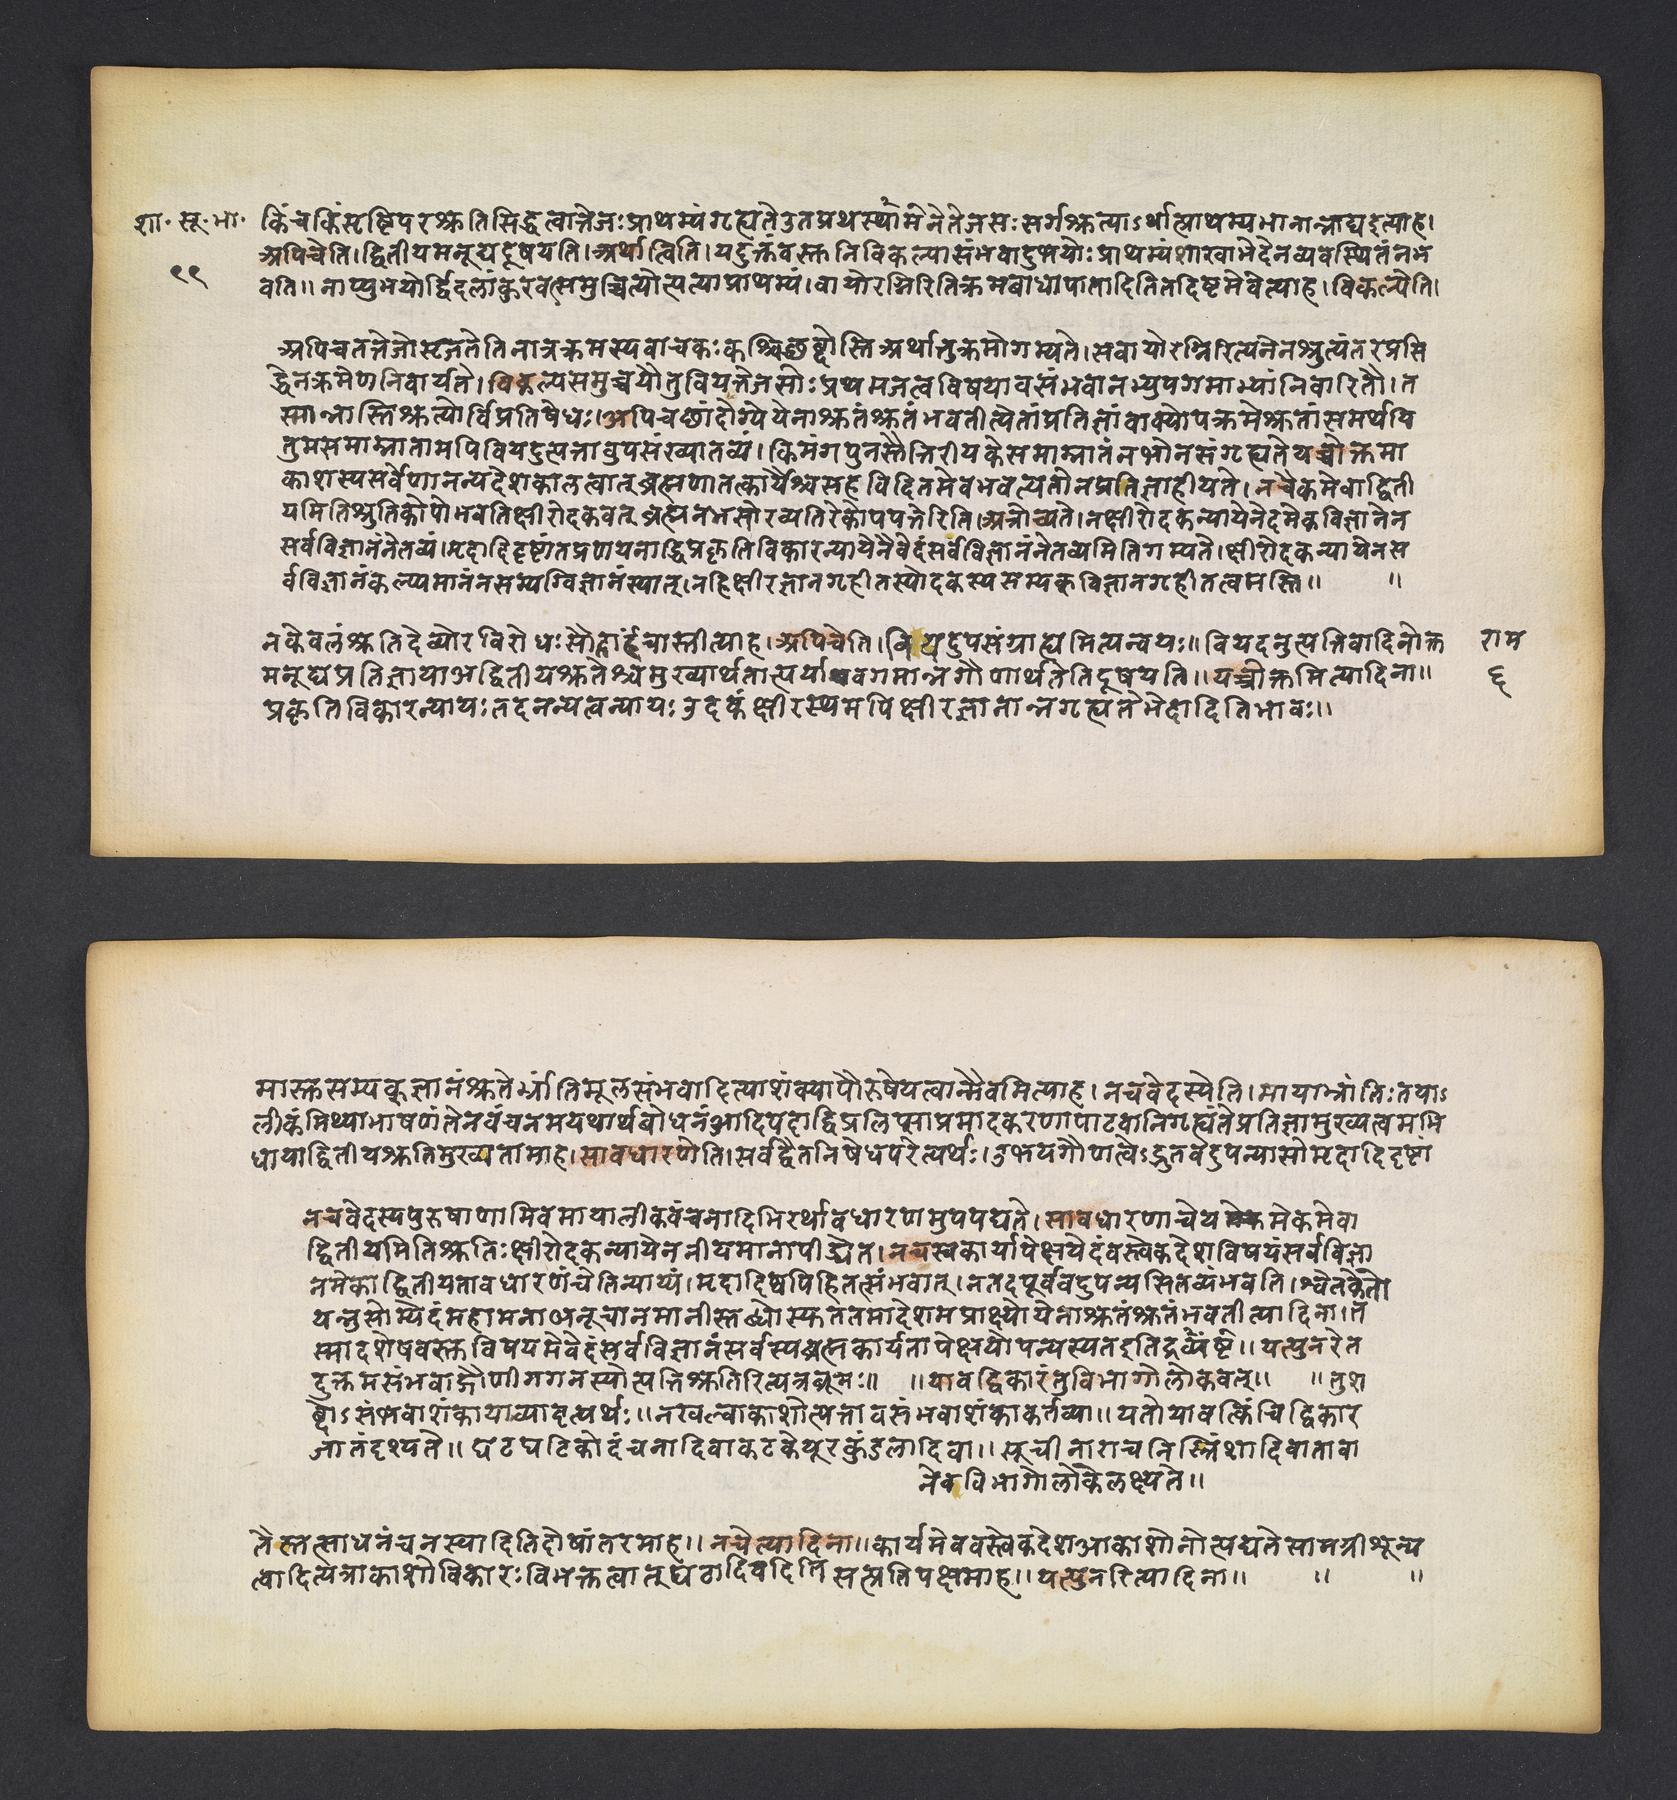 शा॰ सू॰ भा॰
९९
किंचकिंसृष्टिपरश्रुतिसिद्धत्वात्तेजःप्राथम्यंगृह्यतेउतप्रथमस्थाने तेजसःसर्गश्रुत्याऽर्थात्प्राथम्यभानान्नाद्यइत्याह।
अपिचेति।द्वितीयमनूद्यदूषयति।अर्थात्त्विति।यदुक्तंवस्तुनिविकल्पासंभवादुभयोःप्राथम्यंशाखाभेदेनव्यवस्थितंनभ
वति॥ नाप्युभयोर्द्विदलांकुरवत्समुच्चित्योत्पत्याप्राथम्यं।वायोरग्निरितिक्रमबाधापातादितितदिष्टमेवेत्याह।विकल्पेति।
अपिचतत्तेजोसृजतेतिनात्रक्रमस्यवाचकःकश्चिच्छब्दोस्तिअर्थात्तुक्रमोगम्यते।सवायोरग्निरित्यनेनश्रुत्यंतरप्रसि
द्धेनक्रमेणनिवार्यते।विकल्पसमुच्चयौतुवियत्तेजसोःप्रथमजत्वविषयावसंभवानभ्युपगमाभ्यांनिवारितौ।त
स्मान्नास्तिश्रुत्योर्विप्रतिषेधः।अपिचछांदोग्येयेनाश्रुतंश्रुतंभवतीत्येतांप्रतिज्ञांवाक्योपक्रमेश्रुतांसमर्थयि
तुमसमाम्नातामपिवियदुत्पत्तावुपसंख्यातव्यं।किमंगपुनस्तैत्तिरीयकेसमाम्नातंनभोनसंगृह्यतेयच्चोक्तमा
काशस्यसर्वेणानन्यदेशकालत्वात्ब्रह्मणातत्कार्यैश्चसहविदितमेवभवत्यतोनप्रतिज्ञाहीयते।नचैकमेवाद्विती
यमितिश्रुतिकोपोभवतिक्षीरोदकवत्ब्रह्मनभसोरव्यतिरेकोपपत्तेरिति।अत्रोच्यते।नक्षीरोदकन्यायेनेदमेकविज्ञानेन
सर्वविज्ञानंनेतव्यं।मृदादिदृष्टांतप्रणयनाद्धिप्रकृतिविकारन्यायेनैवेदंसर्वविज्ञानंनेतव्यमितिगम्यते।क्षीरोदकन्यायेनस
र्वविज्ञानंकल्प्यमानंनसम्यग्विज्ञानंस्यात्।नहिक्षीरज्ञानगृहीतस्योदकस्यसम्यक्विज्ञानगृहीतत्वमस्ति॥ ॥
नकेवलंश्रुतिद्वयोरविरोधःसौहार्दंचास्तीत्याह।अपिचेति।वियदुपसंग्राह्यमित्यन्वयः॥वियदनुत्पत्तिवादिनोक्त
मनूद्यप्रतिज्ञायाअद्वितीयश्रुतेश्चमुख्यार्थतात्पर्यावगमान्नगौणार्थतेतिदूषयति॥यच्चोक्तमित्यादिना॥
प्रकृतिविकारन्यायःतदनन्यत्वन्यायःउदकंक्षीरस्थमपिक्षीरज्ञानान्नगृह्यतेभेदादितिभावः॥
राम
६
मास्तुसम्यक्ज्ञानंश्रुतेर्भ्रांतिमूलसंभवादित्याशंक्यापौरुषेयत्वान्मैवमित्याह।नचवेदस्येति।मायाभ्रांतिःतयाऽ
लीकंमिथ्याभाषणंतेनवंचनमयथार्थबोधनंआदिपदाद्विप्रलिप्साप्रमादकरणापाटवानिगृह्यंतेप्रतिज्ञामुख्यत्वमभि
धायाद्वितीयश्रुतिमुख्यतामाह।सावधारणेति।सर्वद्वैतनिषेधपरेत्यर्थः।उभयगौणत्वेऽद्भुतवदुपन्यासोमृदादिदृष्टां
नचवेदस्यपुरुषाणामिवमायालीकवंचनादिभिरर्थावधारणमुपपद्यते।सावधारणाचेयमेकमेवा
द्वितीयमितिश्रुतिःक्षीरोदकन्यायेननीयमानापीड्येत।नचस्वकार्यापेक्षयेदंवस्त्वेकदेशविषयंसर्वविज्ञा
नमेकाद्वितीयतावधारणंचेतिन्याय्यं।मृदादिष्वपिहितत्संभवात्।नतदपूर्ववदुपन्यसितव्यंभवति।श्वेतकेतो
यन्नुसोम्येदंमहामनाअनूचानमानीस्तब्धोस्युततमादेशमप्राक्ष्योयेनाश्रुतंश्रुतंभवतीत्यादिना।त
स्मादशेषवस्तुविषयमेवेदंसर्वविज्ञानंसर्वस्यब्रह्मकार्यतापेक्षयोपन्यस्यतइतिद्रष्टव्यं॥यत्पुनरेत
दुक्तमसंभवाद्गौणीगगनस्योत्पत्तिश्रुतिरित्यत्रब्रूमः॥ ॥यावद्विकारंतुविभागोलोकवत्॥ ॥तुश
ब्दोऽसंभवाशंकायाव्यावृत्यर्थः॥नखल्वाकाशोत्पत्तावसंभवाशंकाकर्तव्या॥यतोयावत्किंचिद्विकार
जातंदृश्यते॥घटघटिकोदंचनादिवाकटककेयूरकुंडलादिवा॥सूचीनाराचनिस्त्रिंशादिवातावा
नेवविभागोलोकेलक्ष्यते॥
तैस्तत्साधनंचनस्यादितिदोषांतरमाह॥नचेत्यादिना॥कार्यमेववस्त्वेकदेशआकाशोनोत्पद्यतेसामग्रीशून्य
त्वादित्यत्राकाशोविकारःविभक्तत्वात्घटादिवदितिसत्प्रतिपक्षमाह॥यत्पुनरित्यादिना॥ ॥ ॥